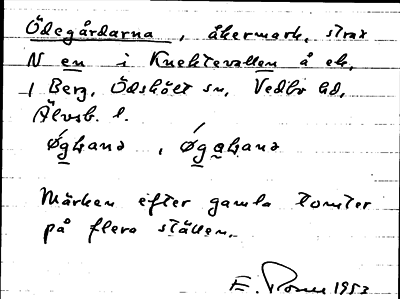 Ödegårdarna, åkermark, strax
N en i Knektevallen å ek,
1 Berg, Ödskölt sn, Vedbo hd,
Älvsb. l.
Märken efter gamla tomter
på flera ställen.
1953